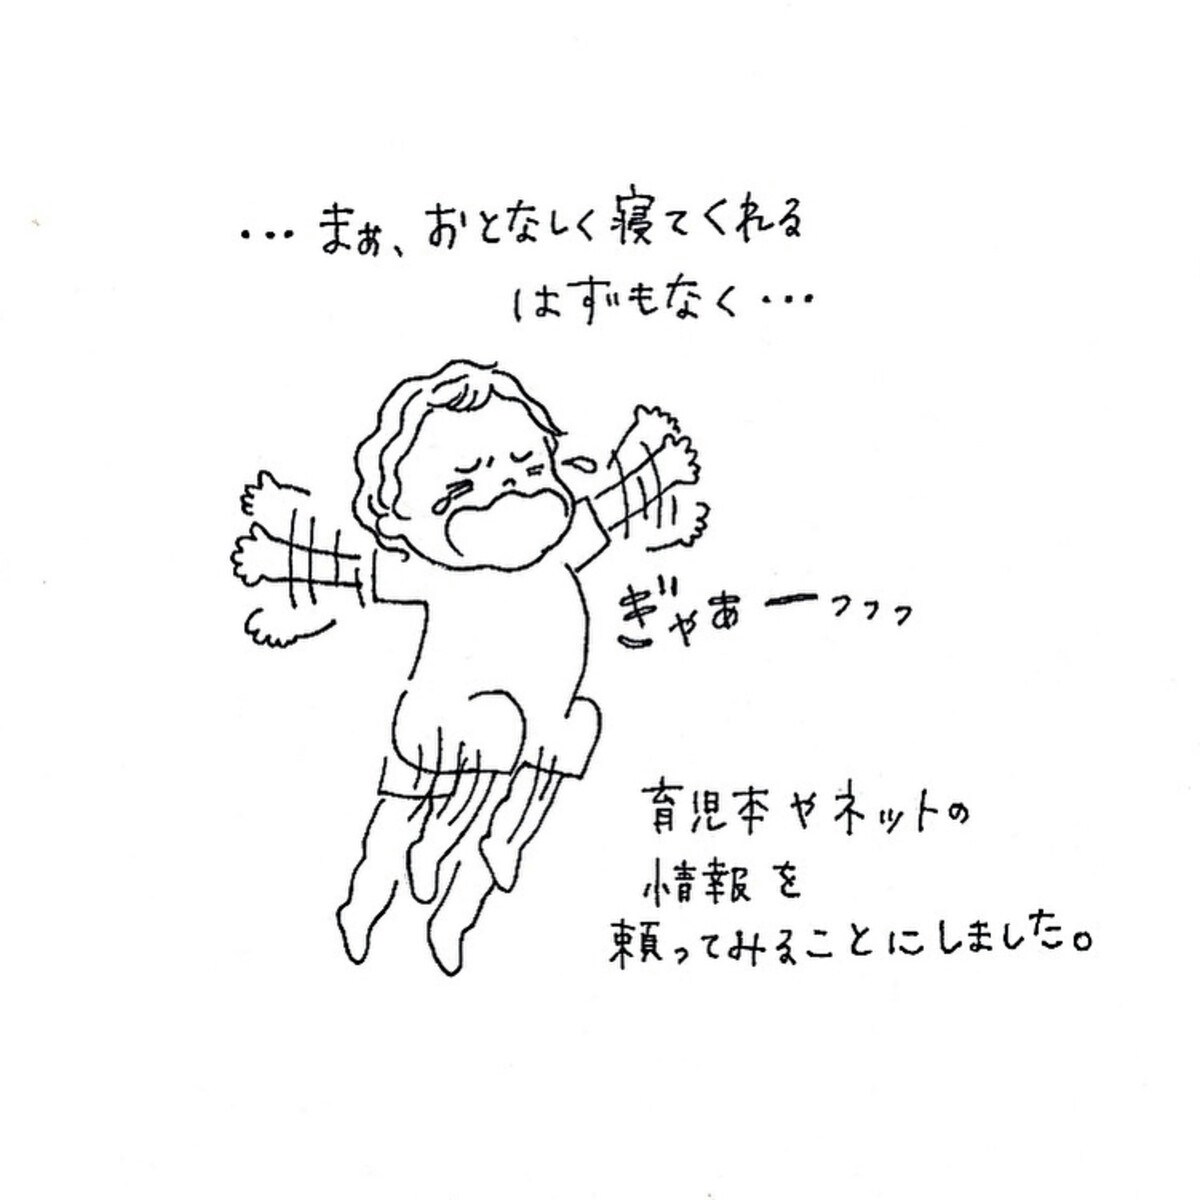 …まぁ、おとなしく寝てくれる
はずもなく…
ぎゃあーッッッ
育児本やネットの
情報を
頼ってみることにしました。